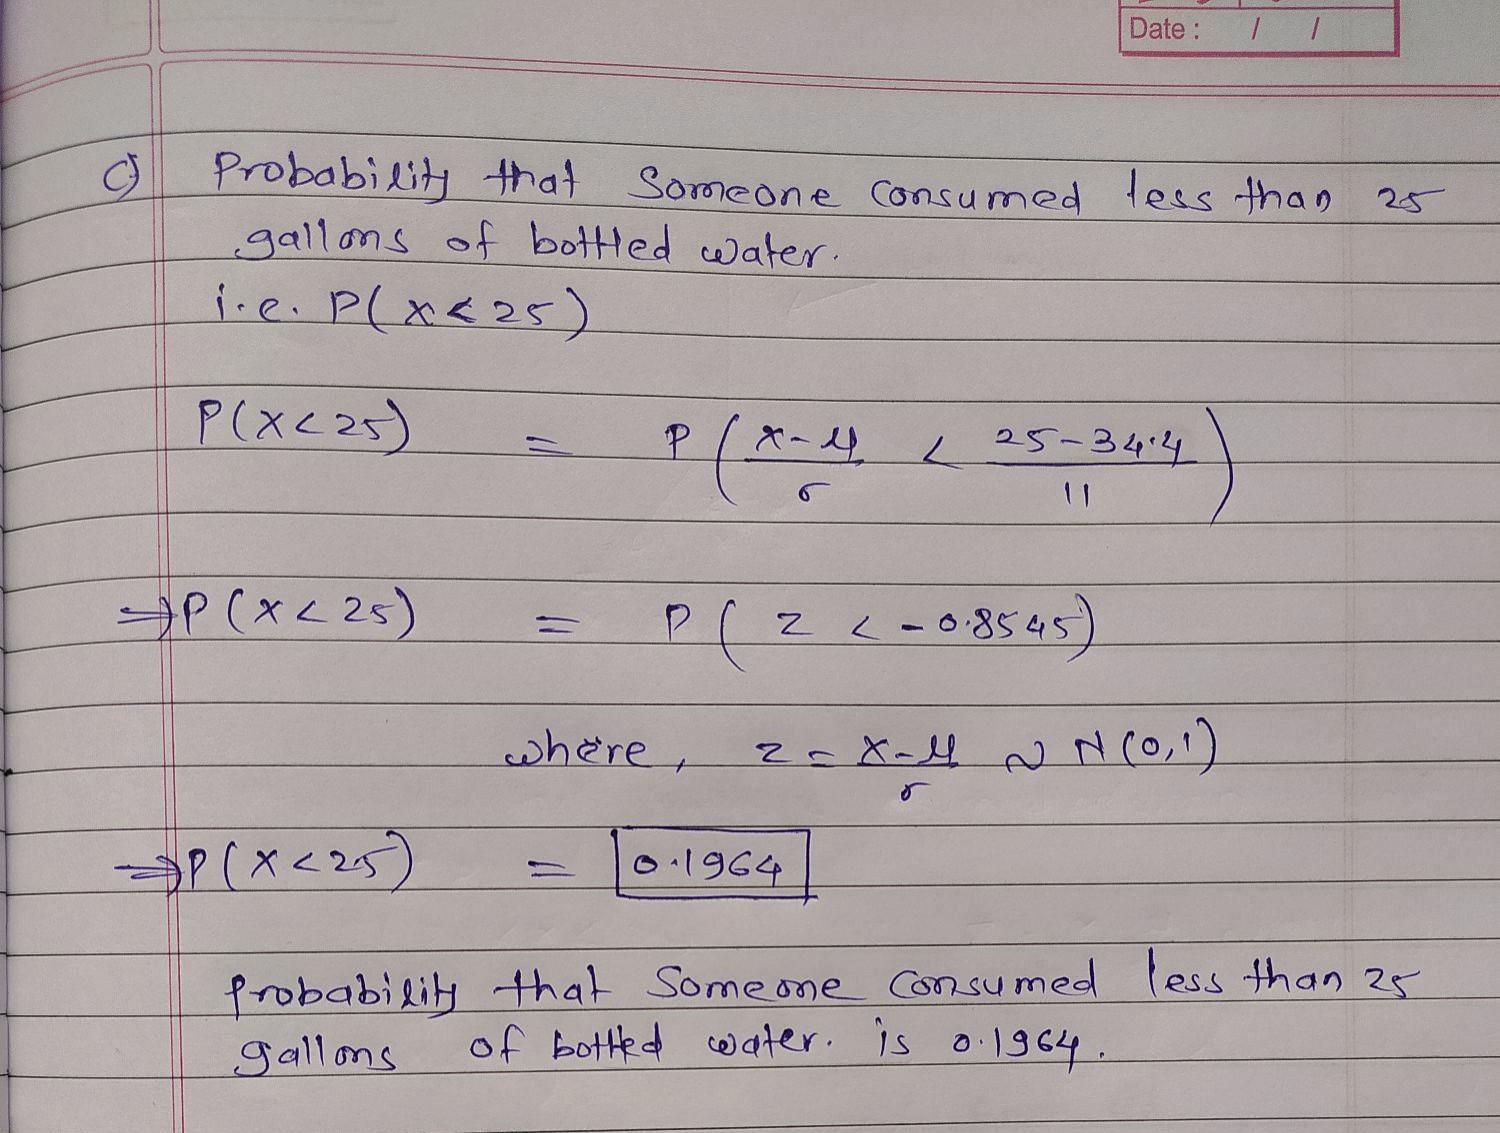 Date : / /
c) Probability that Someone Consumed less than 25
gallons of bottled water.
i.e. P(x<25)
P(X<25) = P(x-μ/σ < 25-34.4/11)
⇒P(X<25) = P(z<-0.8545)
where, z = X-μ/σ ~ N(0,1)
⇒P(X<25) = 0.1964
Probability that Someone Consumed less than 25
gallons of bottled water. is 0.1964.